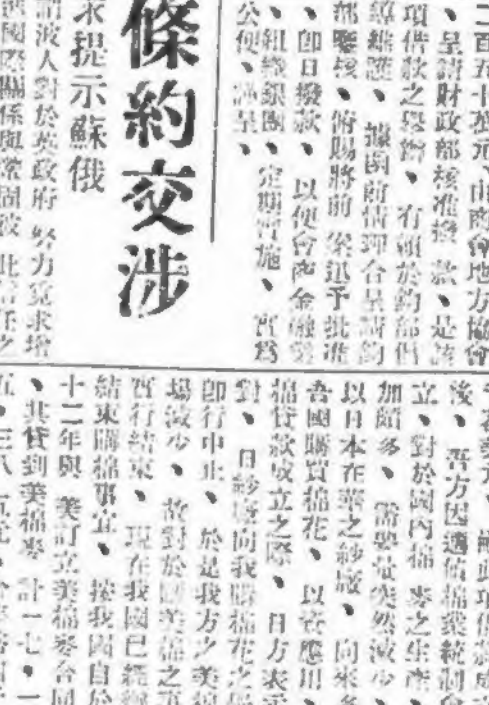 二百五十萬元、由商會地方協會
、呈請財政部核准撥 款、是該
項借款之舉辦、有賴於鈞部倡
導維護、據函前情理合呈請鈞
部鑒核、俯賜將前 案迅予批准
、卽日撥款、以便會 金融界
、組織銀團、定期實施、實爲
公便、謹呈、
條約交涉
求提示蘇俄
謂波人對於英政府 努力覓求增
國際關係與鞏固波 此信任之
此項借款成立
後、吾方因適值棉業統制會
立、對於國內棉 麥之生產、
加頗多、需要量突然減少、
以日本在華之紗廠、向來多
吾國購買棉花、以資應用、
棉貸款成立之際、日方表示
對、日紗廠向我購棉花之
卽行中止、於是我方之美棉
場減少、故對於購美棉之
暫行結束、現在我國已經
結束購棉事宜、按我國自於
十二年與 美訂立美棉麥合同
、其貸到美棉麥 計一七、一
五、三八 五元、